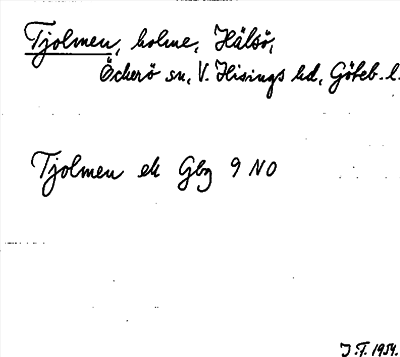 Tjolmen, holme, Hälsö,
Öckerö sn, V. Hisings hd, Göteb. l.
Tjolmen ek Gbg 9 NO
J.F. 1954.